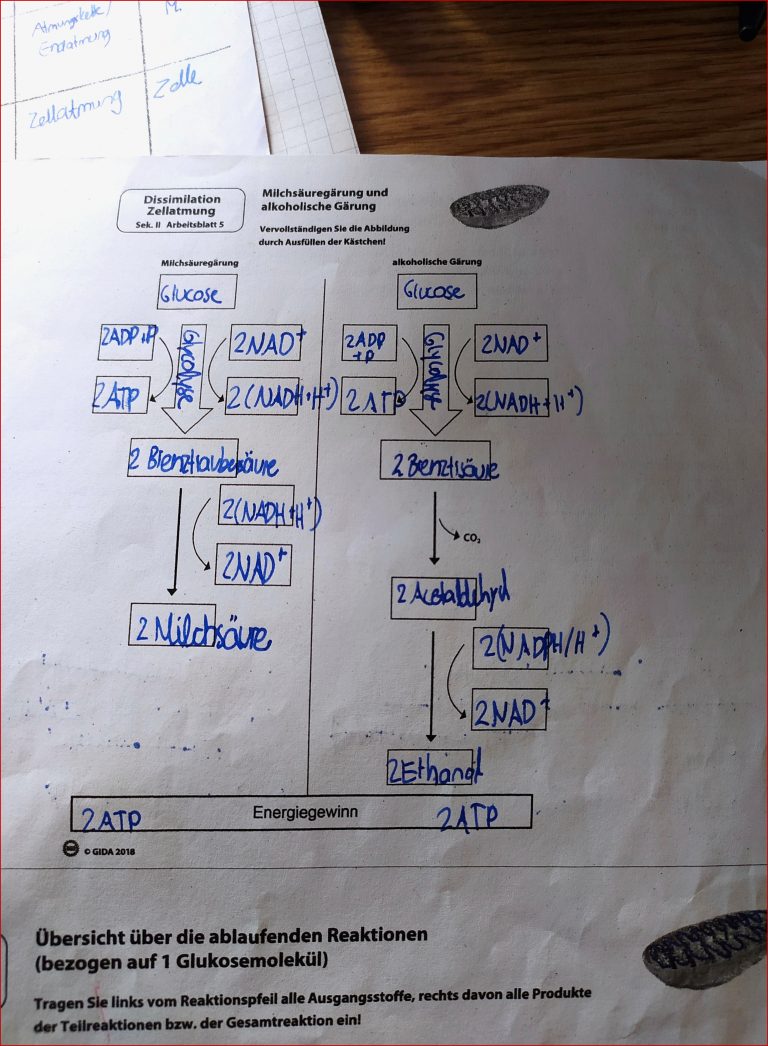 Atmungskette/
Endatmung
M.
Zellatmung
Zelle
Dissimilation
Zellatmung
Sek. II Arbeitsblatt 5
Milchsäuregärung und
alkoholische Gärung
Vervollständigen Sie die Abbildung
durch Ausfüllen der Kästchen!
Milchsäuregärung
alkoholische Gärung
Glucose
Glucose
2ADP+P
Glycolyse
2NAD+
2ADP
+P
Glycolyse
2NAD+
2ATP
2(NADH+H+)
2ATP
2(NADH+H+)
2 Brenztraubensäure
2 Brenztsäure
2(NADH+H+)
2NAD+
CO₂
2 Milchsäure
2 Acetaldehyd
2(NADPH/H+)
2NAD+
2Ethanol
2ATP
Energiegewinn
2ATP
© GIDA 2018
Übersicht über die ablaufenden Reaktionen
(bezogen auf 1 Glukosemolekül)
Tragen Sie links vom Reaktionspfeil alle Ausgangsstoffe, rechts davon alle Produkte
der Teilreaktionen bzw. der Gesamtreaktion ein!